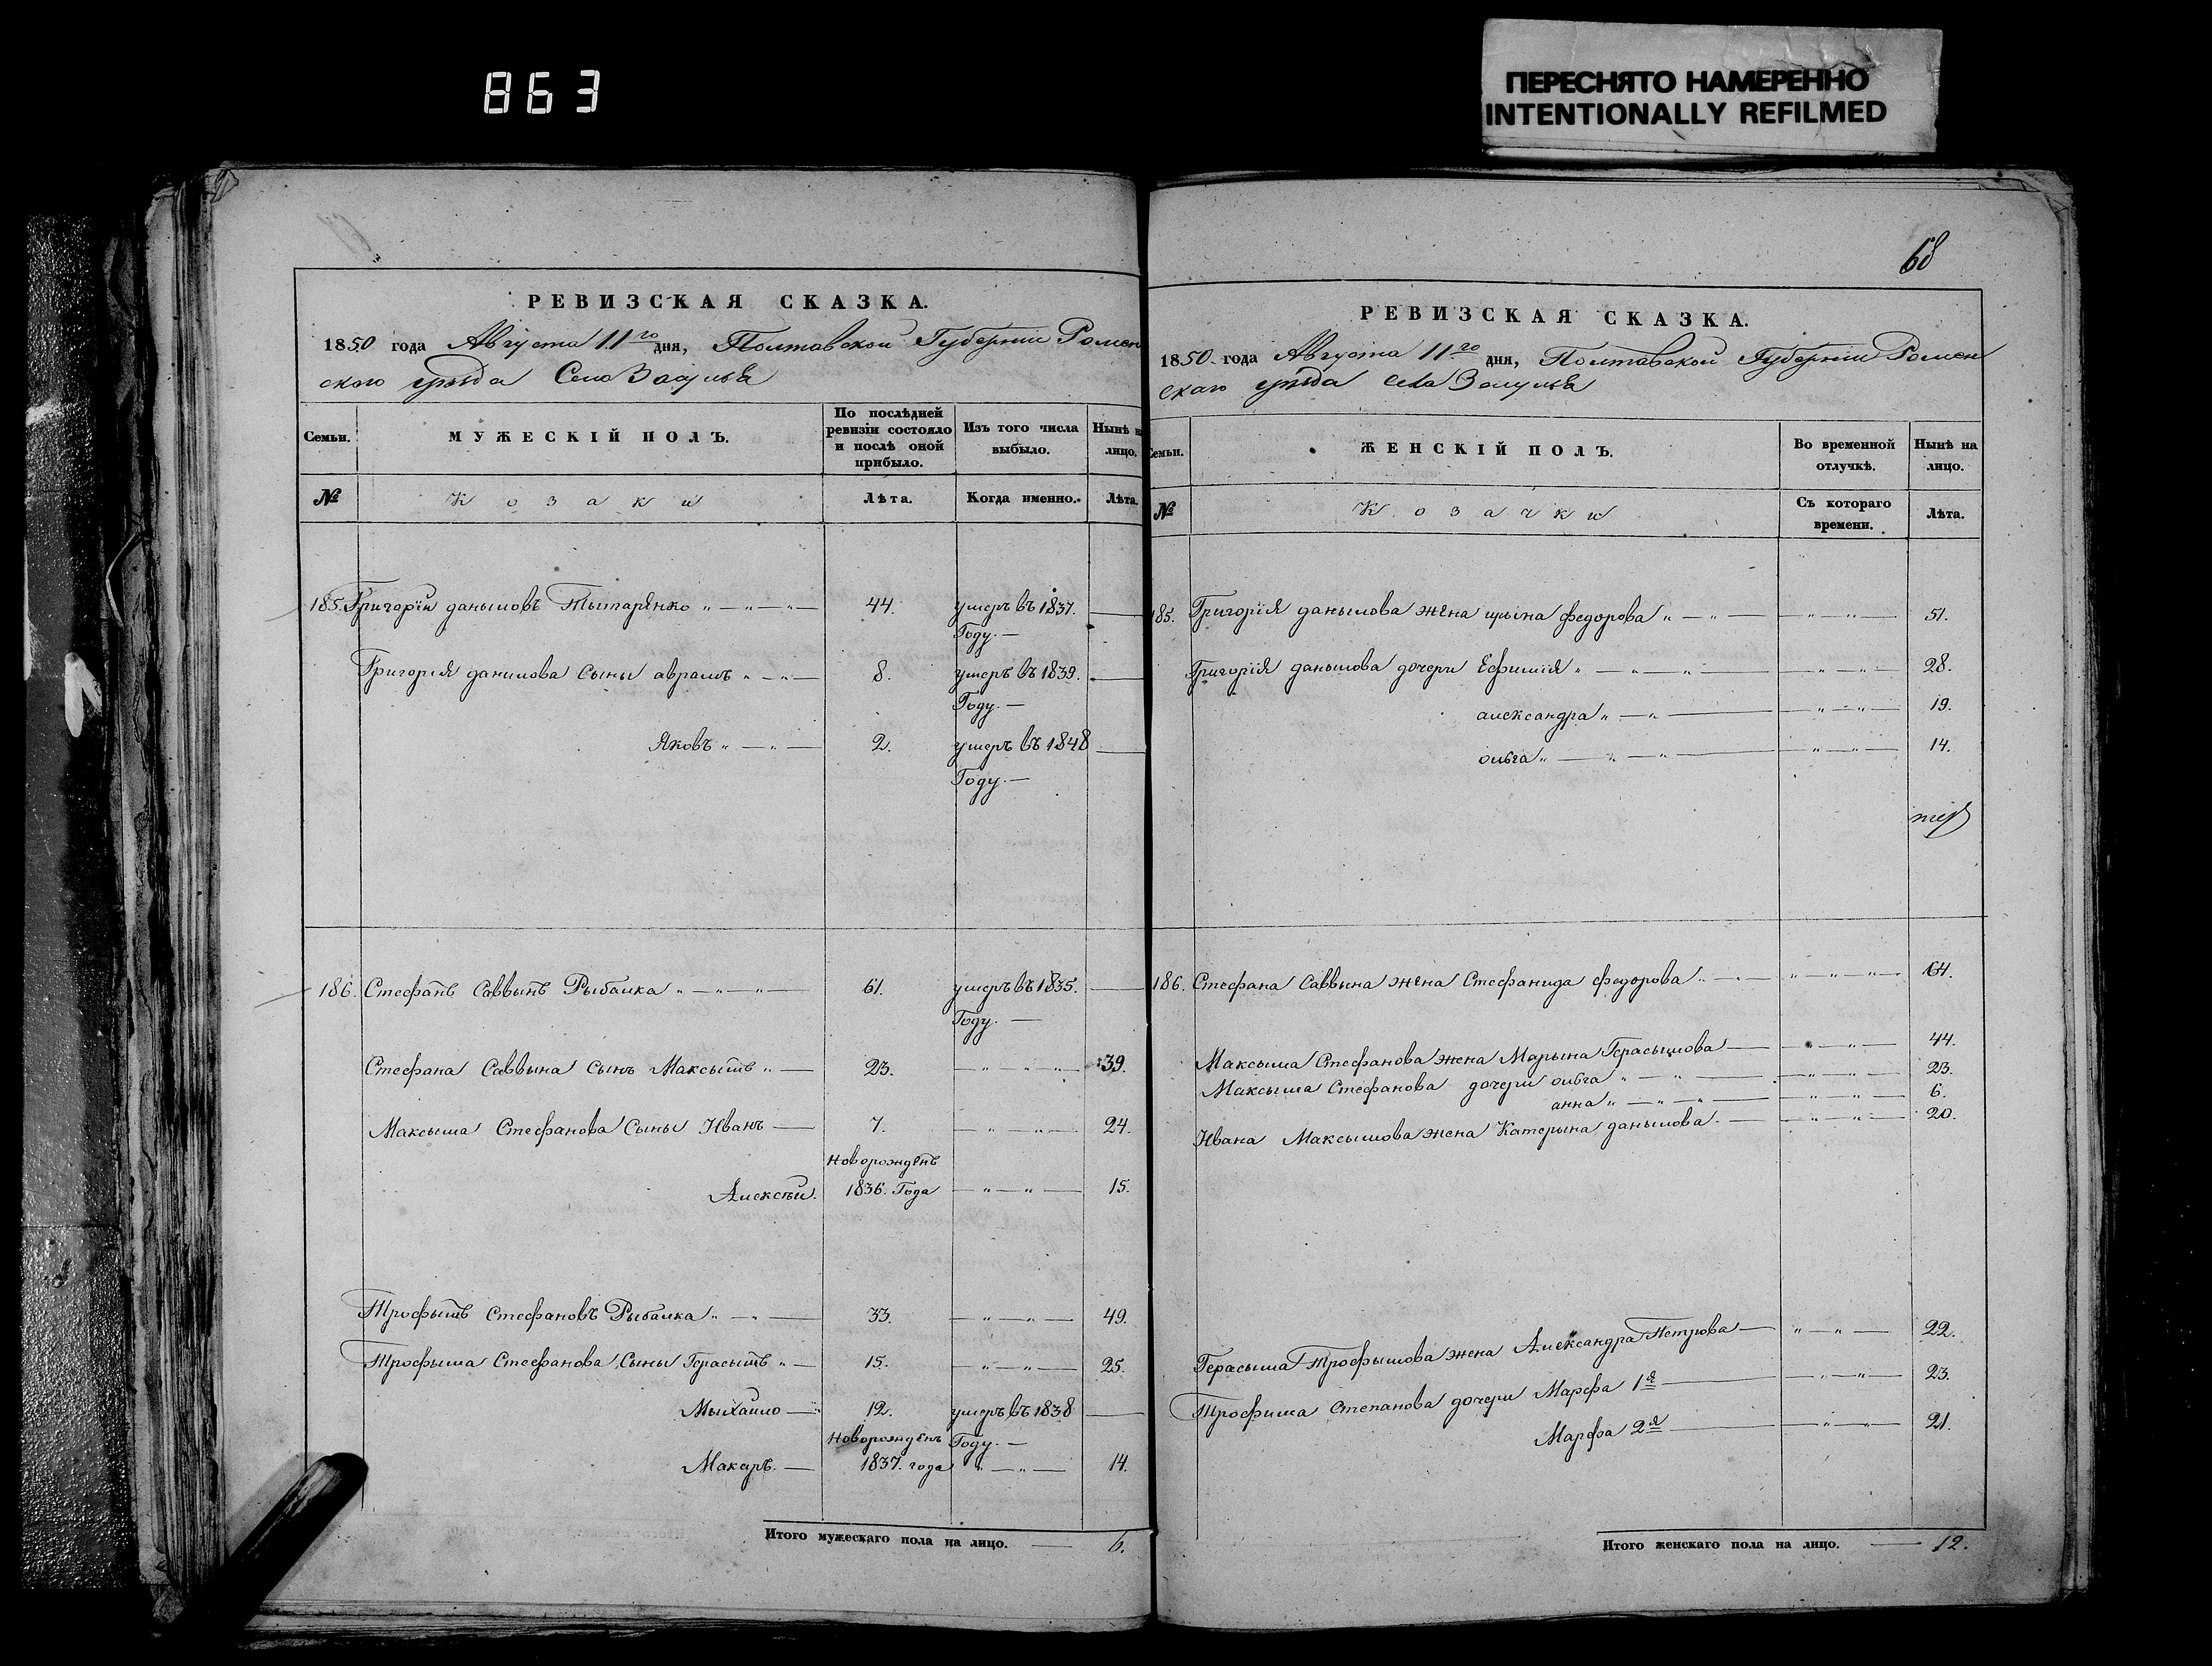 863
ПЕРЕСНЯТО НАМЕРЕННО
INTENTIONALLY REFILMED
РЕВИЗСКАЯ СКАЗКА.
1850 года Августа 11го дня, Полтавской Губернии Ромен
ского уезда Село Засулья
Семьи. МУЖЕСКІЙ ПОЛЪ. По послѣдней ревизіи состояло и послѣ оной прибыло. Изъ того числа выбыло. Нынѣ на лицо.
№ Козаки Лѣта. Когда именно. Лѣта.
185. Григорій даныловъ Тытарѣнко 44. умеръ въ 1837.
Году.
Григорія данилова Сыны аврамъ 8. умеръ въ 1839.
Году.
Яковъ 2. умеръ въ 1848
Году.
186. Стефанъ Саввынъ Рыбалка 61. умеръ въ 1835.
Году.
Стефана Саввына Сынъ Максымъ 23. 39.
Максыма Стефанова Сыны Иванъ 7. 24.
Новорождѣнъ
Алексѣй. 1836. Года 15.
Трофымъ Стефановъ Рыбалка 33. 49.
Трофыма Стефанова Сыны Герасымъ 15. 25.
Мыхайло 12. умеръ въ 1838
Новорождѣнъ Году.
Макаръ. 1837. года 14.
Итого мужескаго пола на лицо. 6.
68
РЕВИЗСКАЯ СКАЗКА.
1850. года Августа 11го дня, Полтавской Губерніи Ромен
скаго уѣзда села Засулья
Семьи. ЖЕНСКІЙ ПОЛЪ. Во временной отлучкѣ. Нынѣ на лицо.
№ Козачки Съ котораго времени. Лѣта.
185. Григорія данылова жена ирына федорова 51.
Григорія данылова дочери Ефимія 28.
александра 19.
ольга 14.
186. Стефана Саввына жена Стефанида федорова 64.
Максыма Стефанова жена Марына Герасымова 44.
Максыма Стефанова дочери ольга 23.
анна 6.
Ивана Максымова жена Катерына данылова 20.
Герасыма Трофымова жена Александра Петрова 22.
Трофима Степанова дочери Марфа 1я 23.
Марфа 2я 21.
Итого женскаго пола на лицо. 12.